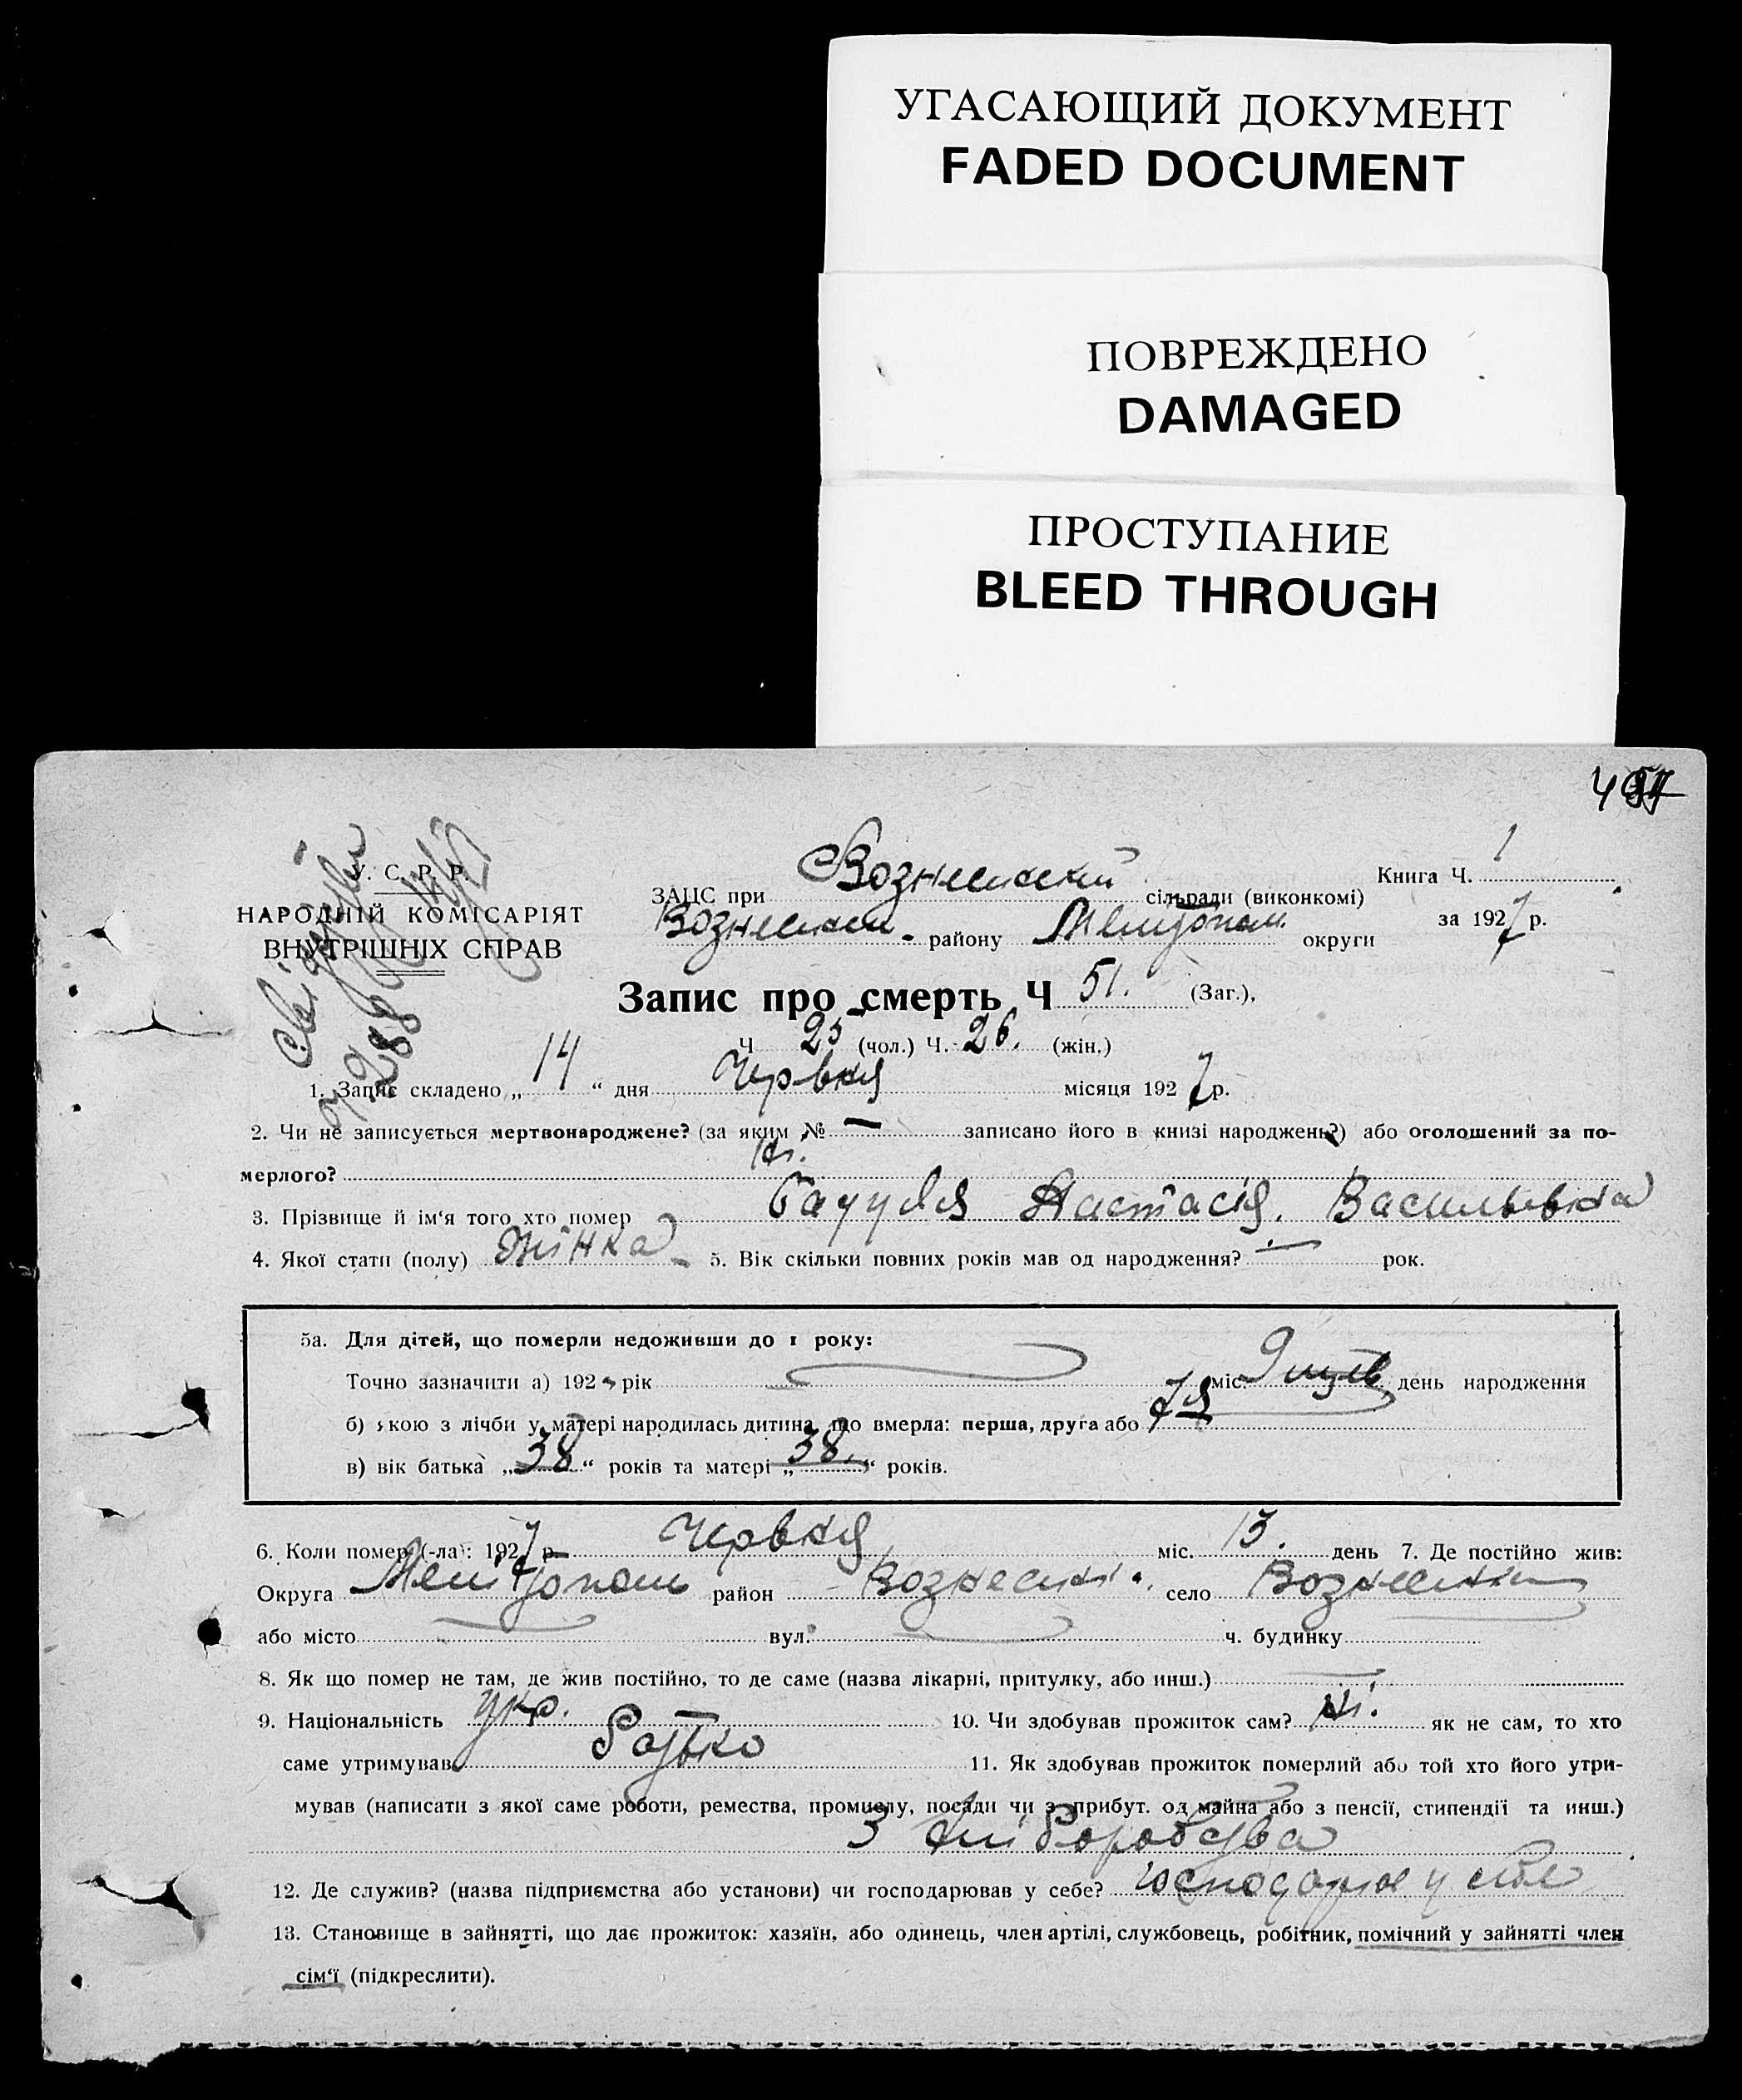 УГАСАЮЩИЙ ДОКУМЕНТ
FADED DOCUMENT
ПОВРЕЖДЕНО
DAMAGED
ПРОСТУПАНИЕ
BLEED THROUGH
У. С. Р. Р.
НАРОДНІЙ КОМІСАРІЯТ
ВНУТРІШНІХ СПРАВ
Книга Ч. 1
ЗАЦС при Вознесенскій сільради (виконкомі)
за 1927 р.
району Мелітопол. округи
Запис про смерть Ч 51. (Заг.),
Ч 25 (чол.) Ч. 26. (жін.)
1. Запис складено „ 14 “ дня Червня місяця 1927 р.
2. Чи не записується мертвонароджене? (за яким № — записано його в книзі народжень?) або оголошений за по-
мерлого? ні.
3. Прізвище й ім‘я того хто помер Настасія Васильевна
4. Якої стати (полу) жінка 5. Вік скільки повних років мав од народження? — рок.
5а. Для дітей, що померли недоживши до 1 року:
Точно зазначити а) 192 рік міс. 9 місяців день народження
б) якою з лічби у матері народилась дитина, що вмерла: перша, друга або 7я
в) вік батька „38“ років та матері „38.“ років.
6. Коли помер (-ла): 1927 р. Червня міс. 13. день 7. Де постійно жив:
Округа Мелітопол район село
або місто вул. ч. будинку
8. Як що помер не там, де жив постійно, то де саме (назва лікарні, притулку, або инш.)
9. Національність укр. 10. Чи здобував прожиток сам? ні. як не сам, то хто
саме утримував батько 11. Як здобував прожиток померлий або той хто його утри-
мував (написати з якої саме роботи, ремества, промислу, посади чи з прибут. од майна або з пенсії, стипендії та инш.)
З хліборобства
12. Де служив? (назва підприємства або установи) чи господарював у себе? у себе
13. Становище в зайнятті, що дає прожиток: хазяїн, або одинець, член артілі, службовець, робітник, помічний у зайнятті член
сім‘ї (підкреслити).